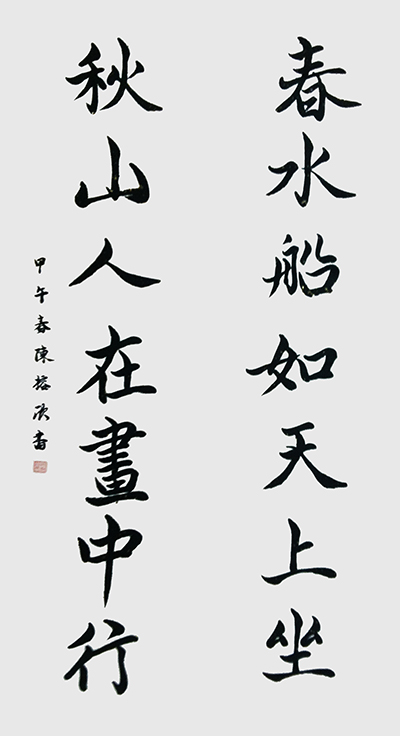 春水船如天上坐
秋山人在畫中行
甲午春陳榕欣書